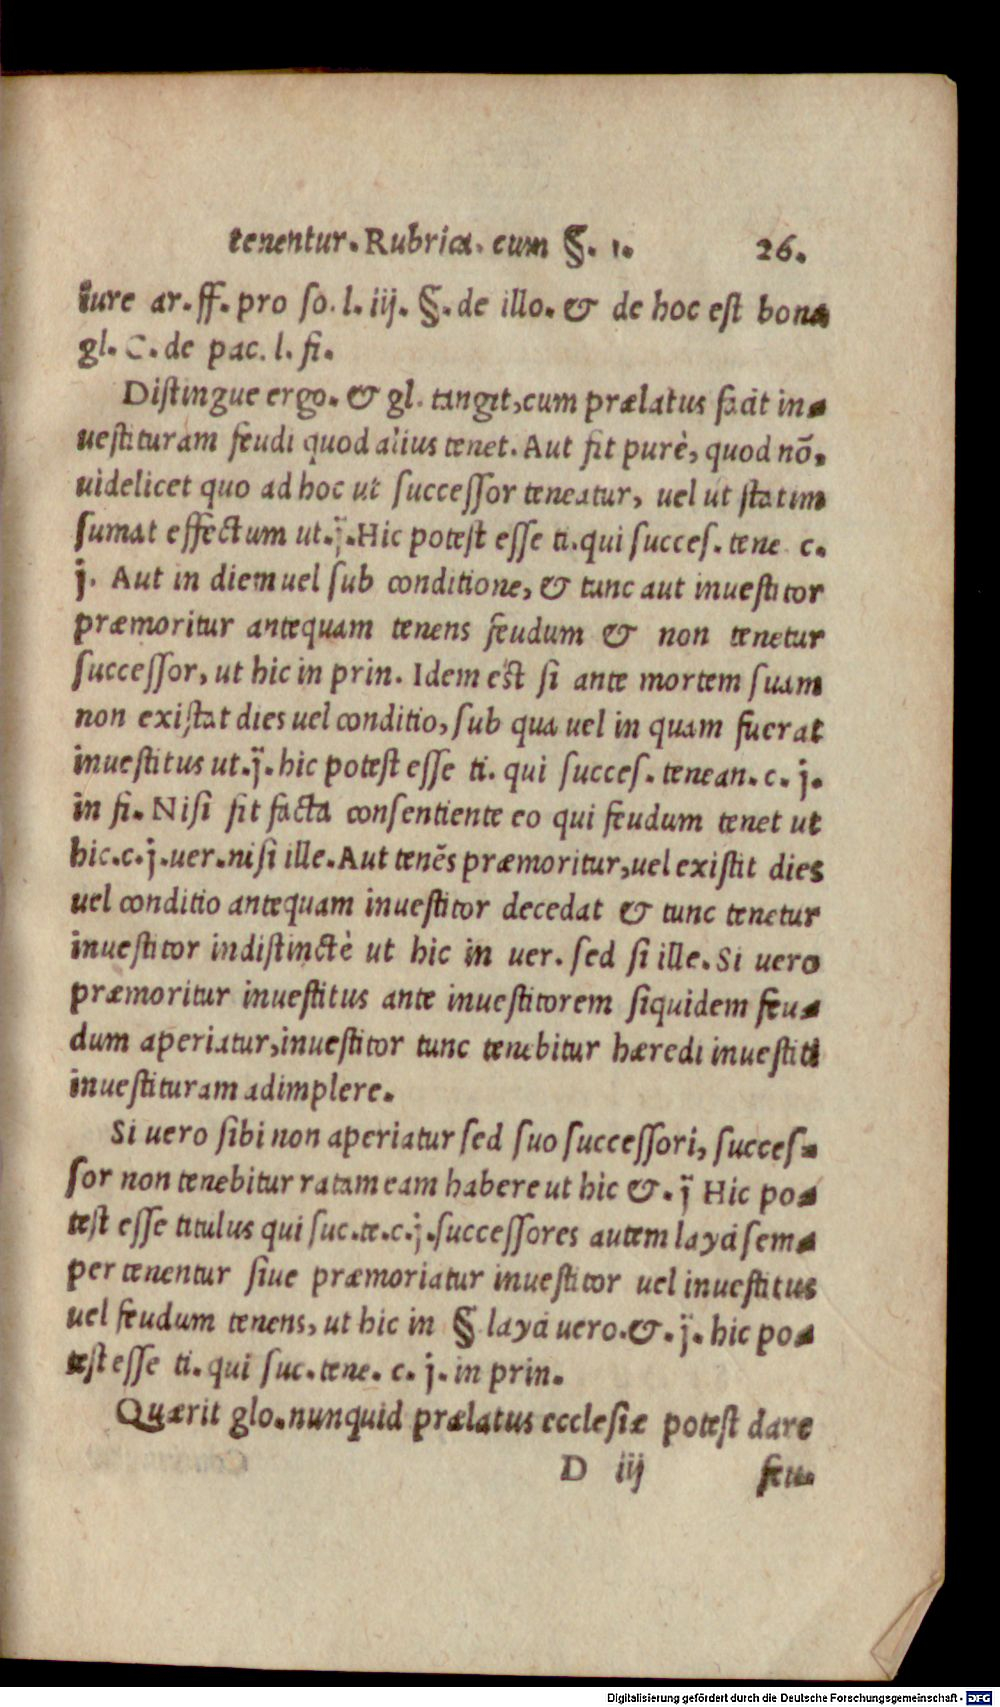 tenentur. Rubrica. cum §. 1. 26.
iure ar. ff. pro so. l. iij. §. de illo. & de hoc est bona
gl. C. de pac. l. fi.
Distingue ergo. & gl. tangit, cum prælatus facit in-
uestituram feudi quod alius tenet. Aut fit purè, quod nō,
uidelicet quo ad hoc ut successor teneatur, uel ut statim
sumat effectum ut. j̈. Hic potest esse ti. qui succes. tene c.
j. Aut in diem uel sub conditione, & tunc aut inuestitor
præmoritur antequam tenens feudum & non tenetur
successor, ut hic in prin. Idem est si ante mortem suam
non existat dies uel conditio, sub qua uel in quam fuerat
inuestitus ut. j̈. hic potest esse ti. qui succes. tenean. c. j.
in fi. Nisi fit facta consentiente eo qui feudum tenet ut
hic. c. j. uer. nisi ille. Aut tenēs præmoritur, uel existit dies
uel conditio antequam inuestitor decedat & tunc tenetur
inuestitor indistinctè ut hic in uer. sed si ille. Si uero
præmoritur inuestitus ante inuestitorem siquidem feu-
dum aperiatur, inuestitor tunc tenebitur hæredi inuestiti
inuestituram adimplere.
Si uero sibi non aperiatur sed suo successori, succes-
sor non tenebitur ratam eam habere ut hic &. j̈ Hic po-
test esse titulus qui suc. te. c. j. successores autem layci sem-
per tenentur siue præmoriatur inuestitor uel inuestitus
uel feudum tenens, ut hic in § layci uero. &. j̈. hic po-
test esse ti. qui suc. tene. c. j. in prin.
Quærit glo. nunquid prælatus ecclesiæ potest dare
D iij feu-
Digitalisierung gefördert durch die Deutsche Forschungsgemeinschaft - DFG